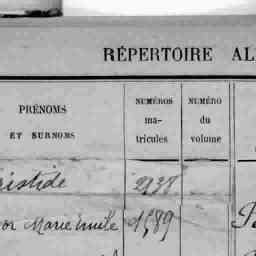 RÉPERTOIRE AL
PRÉNOMS
ET SURNOMS
NUMÉROS
ma-
tricules
NUMÉRO
du
volume
ristide 2938
or Marie Emile 1589